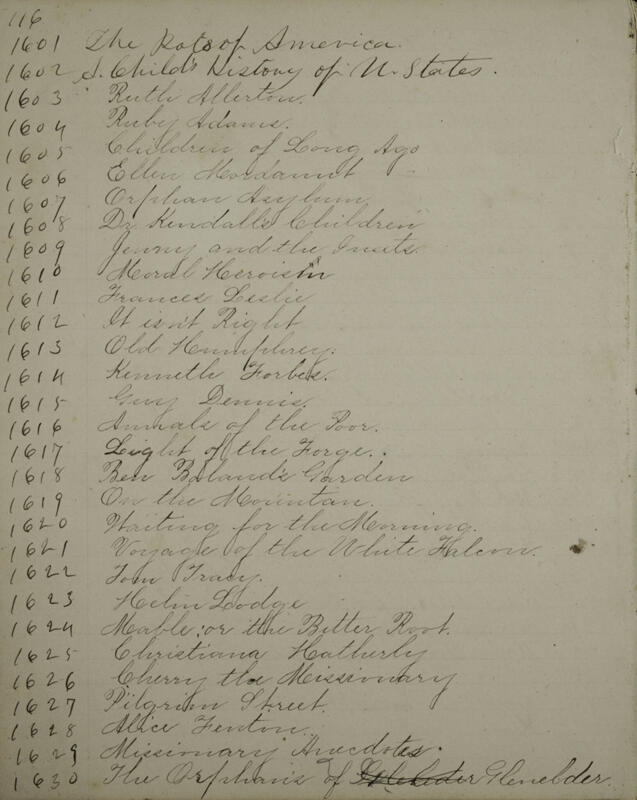 116
1601 The Poets of America.
1602 A Child's History of U. States.
1603 Ruth Allerton.
1604 Ruby Adams.
1605 Children of Long Ago
1606 Ellen Mordaunt
1607 Orphan Asylum
1608 Dr. Kendall's Children
1609 Jenny and the Insets.
1610 Moral Heroism
1611 Frances Leslie
1612 It isn't Right
1613 Old Humphrey.
1614 Kenneth Forbes.
1615 Guy Dennis.
1616 Annals of the Poor.
1617 Light of the Forge.
1618 Ben Boland's Garden
1619 On the Mountan.
1620 Waiting for the Morning.
1621 Voyage of the White Falcon.
1622 Tom Tracy.
1623 Helin Lodge
1624 Mable; or the Bitter Root.
1625 Christiana Hatherly
1626 Cherry the Missionary
1627 Pilgrim Street.
1628 Alice Fenton.
1629 Missionary Anecdotes.
1630 The Orphans of Glenelder